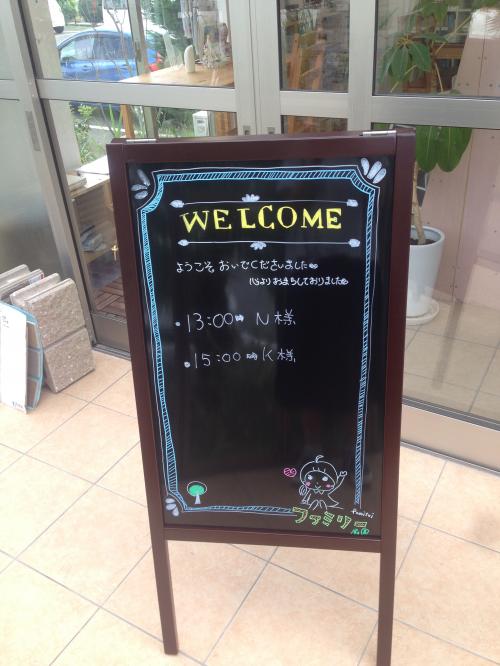 WELCOME
ようこそ おいでくださいました
心よりお待ちしておりました
・13:00時 N様
・15:00時 K様
ファミリー